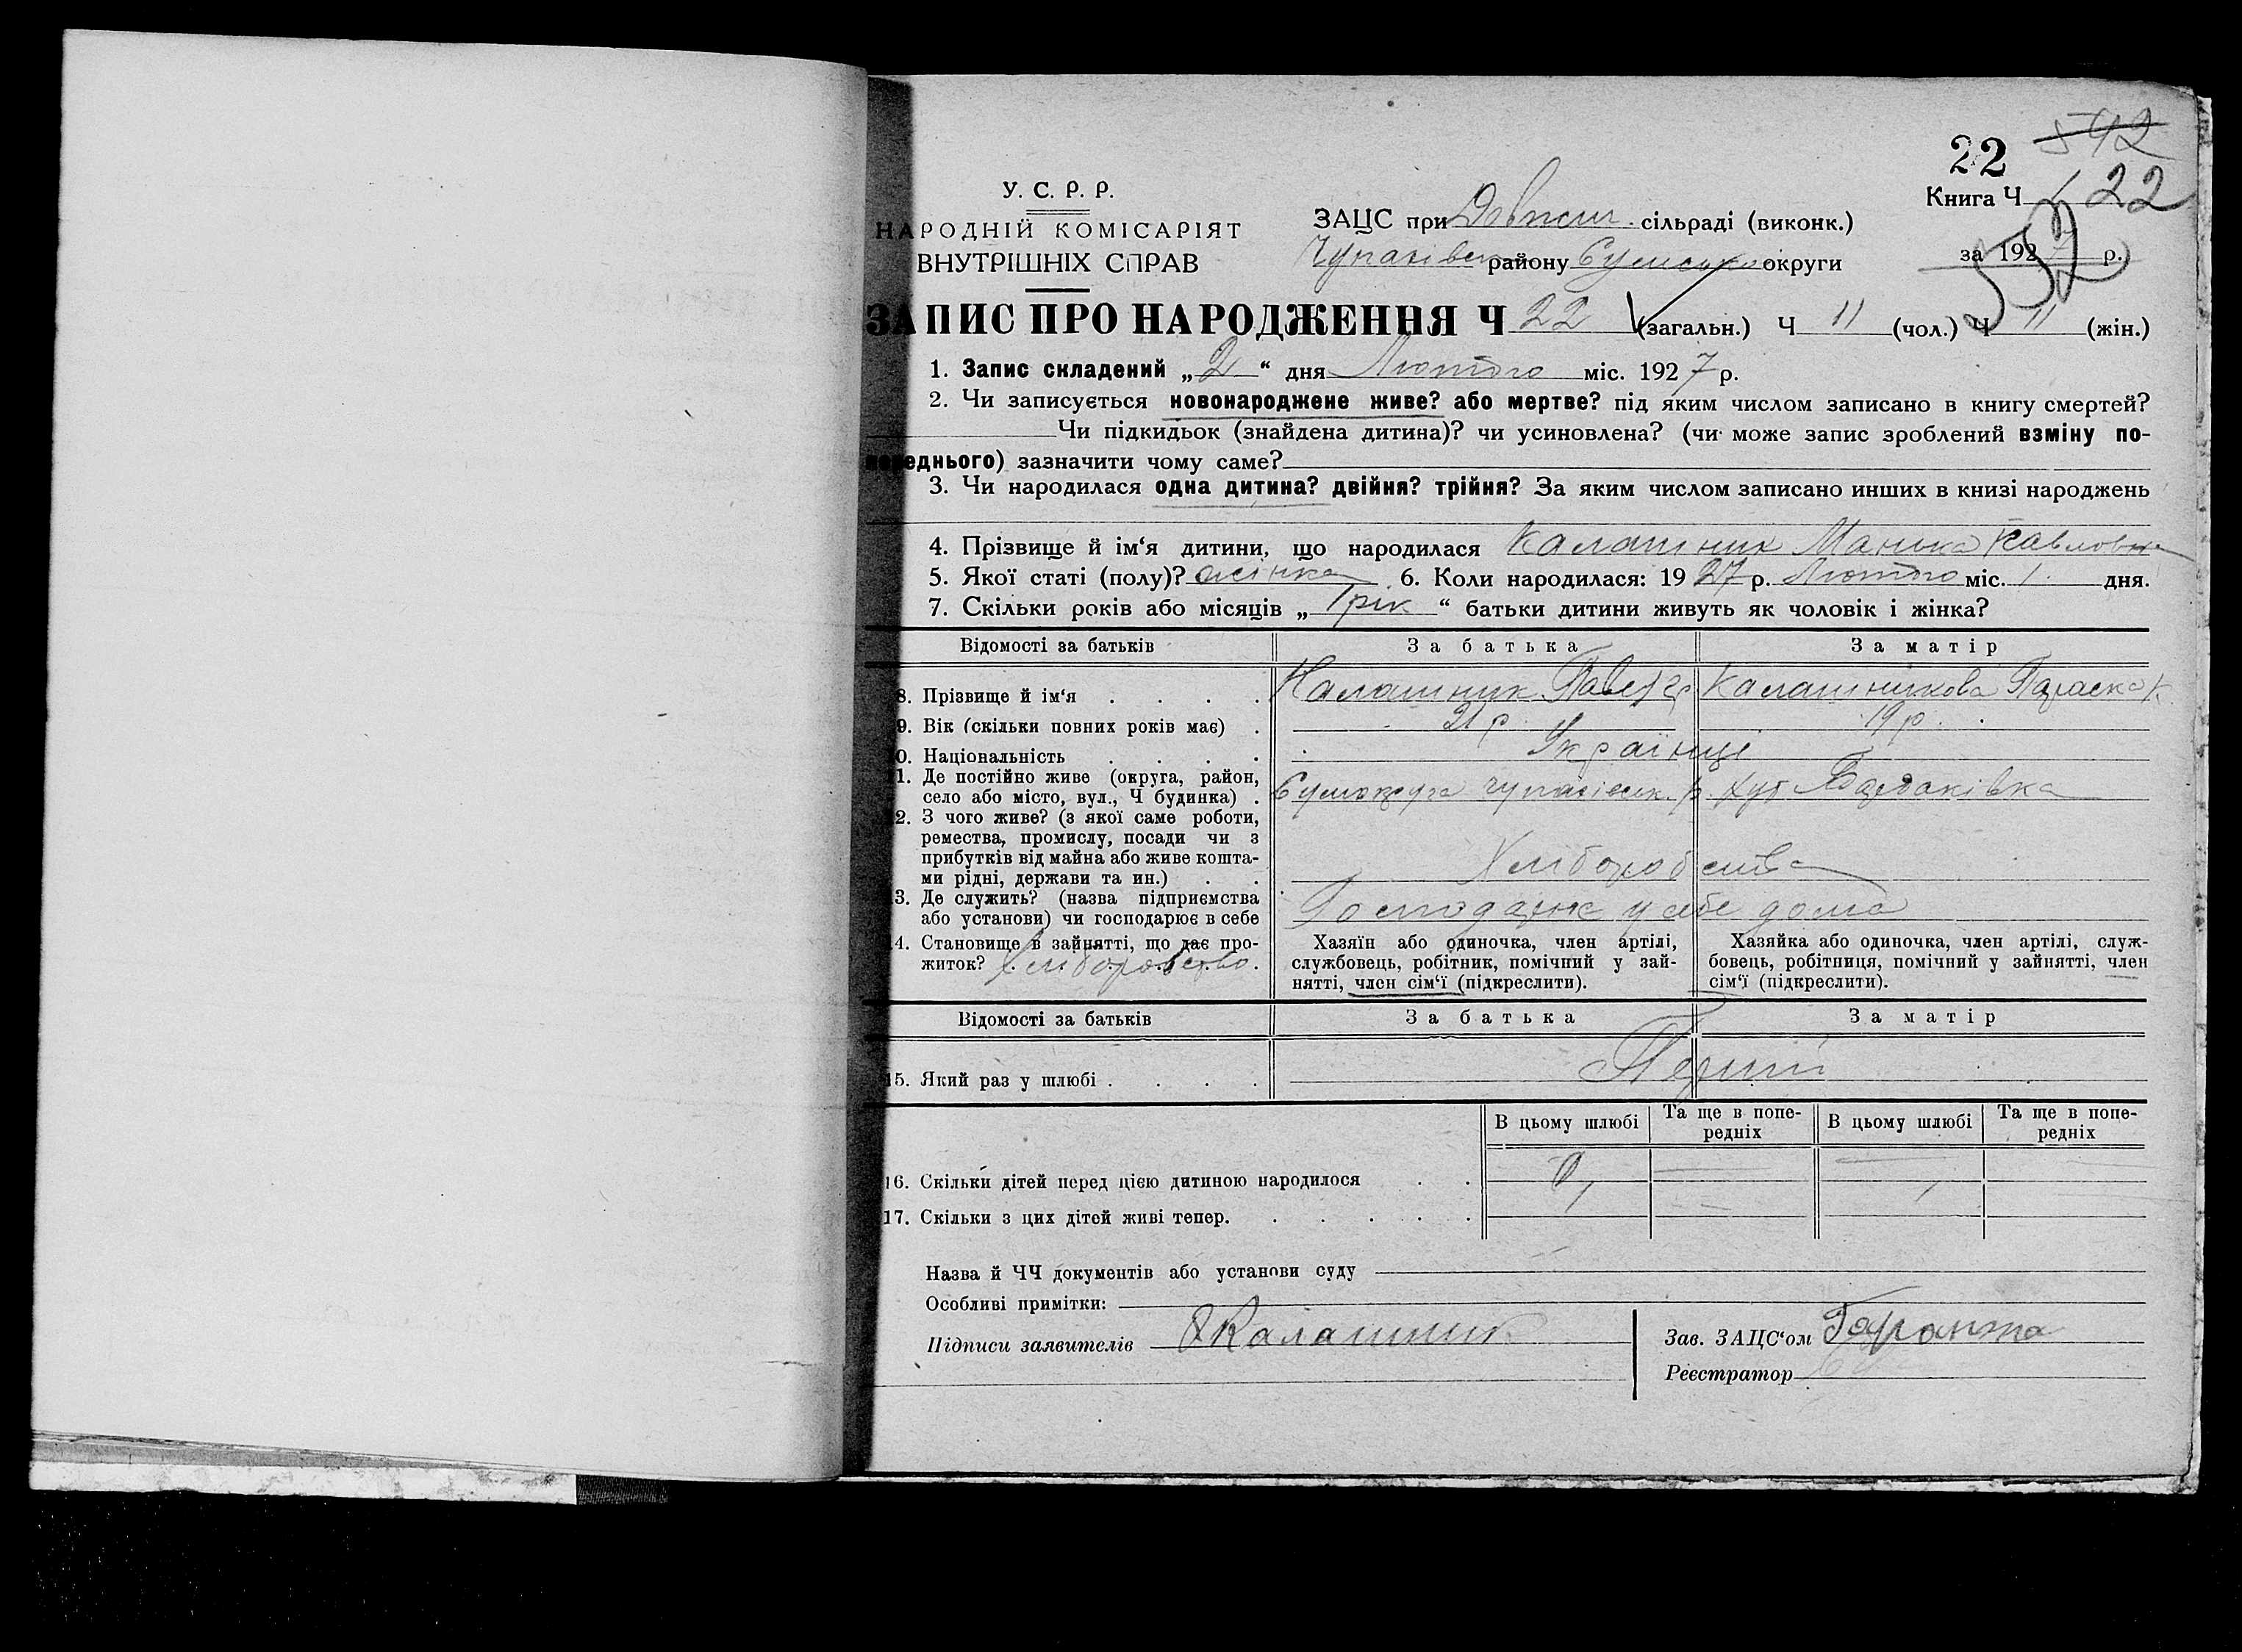 22 542
У. С. Р. Р.
НАРОДНІЙ КОМІСАРІЯТ
ВНУТРІШНІХ СПРАВ
ЗАЦС при сільраді (виконк.)
району округи
Книга Ч 22
552
за 1927 р.
ЗАПИС ПРО НАРОДЖЕННЯ Ч 22 (загальн.) Ч 11 (чол.) Ч 11 (жін.)
1. Запис складений „2“ дня Лютого міс. 1927 р.
2. Чи записується новонароджене живе? або мертве? під яким числом записано в книгу смертей?
Чи підкидьок (знайдена дитина)? чи усиновлена? (чи може запис зроблений взміну по-
переднього) зазначити чому саме?
3. Чи народилася одна дитина? двійня? трійня? За яким числом записано инших в книзі народжень
4. Прізвище й ім‘я дитини, що народилася Калашник Манька Павловна
5. Якої статі (полу)? жінка 6. Коли народилася: 1927 р. Лютого міс. 1 дня.
7. Скільки років або місяців „1 рік“ батьки дитини живуть як чоловік і жінка?
Відомості за батьків За батька За матір
8. Прізвище й ім‘я . . . . Калашник Павел Калашникова Параска К.
9. Вік (скільки повних років має) . 21 р. 19 р.
10. Національність . . . . Українці
11. Де постійно живе (округа, район,
село або місто, вул., Ч будинка) . р. хут
12. З чого живе? (з якої саме роботи,
ремества, промислу, посади чи з
прибутків від майна або живе кошта-
ми рідні, держави та ин.) . . Хліборобства
13. Де служить? (назва підприємства
або установи) чи господарює в себе Господарює у себе дома
14. Становище в зайнятті, що дає про-
житок? Хліборобство
Хазяїн або одиночка, член артілі,
службовець, робітник, помічний у зай-
нятті, член сім‘ї (підкреслити).
Хазяйка або одиночка, член артілі, служ-
бовець, робітниця, помічний у зайнятті, член
сім‘ї (підкреслити).
Відомості за батьків За батька За матір
15. Який раз у шлюбі . . . . Перший
В цьому шлюбі Та ще в попе-редніх В цьому шлюбі Та ще в попе-редніх
16. Скільки дітей перед цією дитиною народилося . .
17. Скільки з цих дітей живі тепер. . . . . .
Назва й ЧЧ документів або установи суду
Особливі примітки:
Підписи заявителів Калашник
Зав. ЗАЦС‘ом
Реєстратор